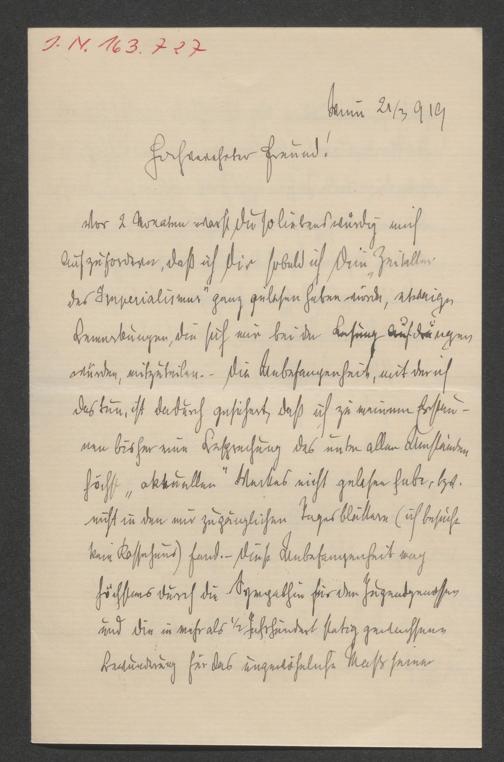 J. N. 163.727
Wien 21/3 919
Hochverehrter Freund!
Vor 2 Monaten warst Du so liebenswürdig mich
aufzufordern, daß ich Dir sobald ich Dein „Zeitalter
des Imperialismus" ganz gelesen haben würde, etwaige
Bemerkungen, die sich mir bei der Lesung aufdrängen
würden, mitzuteilen. - Die Unbefangenheit, mit der ich
das tun, ist dadurch gesichert, daß ich zu meinem Erstau-
nen bisher eine Besprechung des unter allen Umständen
höchst „aktuellen" Werkes nicht gelesen habe, bzw.
nicht in den mir zugänglichen Tagesblättern (ich besuche
kein Kaffehaus) fand. - Diese Unbefangenheit mag
höchstens durch die Sympathie für den Jugendgenossen
und die in mehr als 1/2 Jahrhundert stetig gewachsene
Bewunderung für das ungewöhnliche Maß seiner